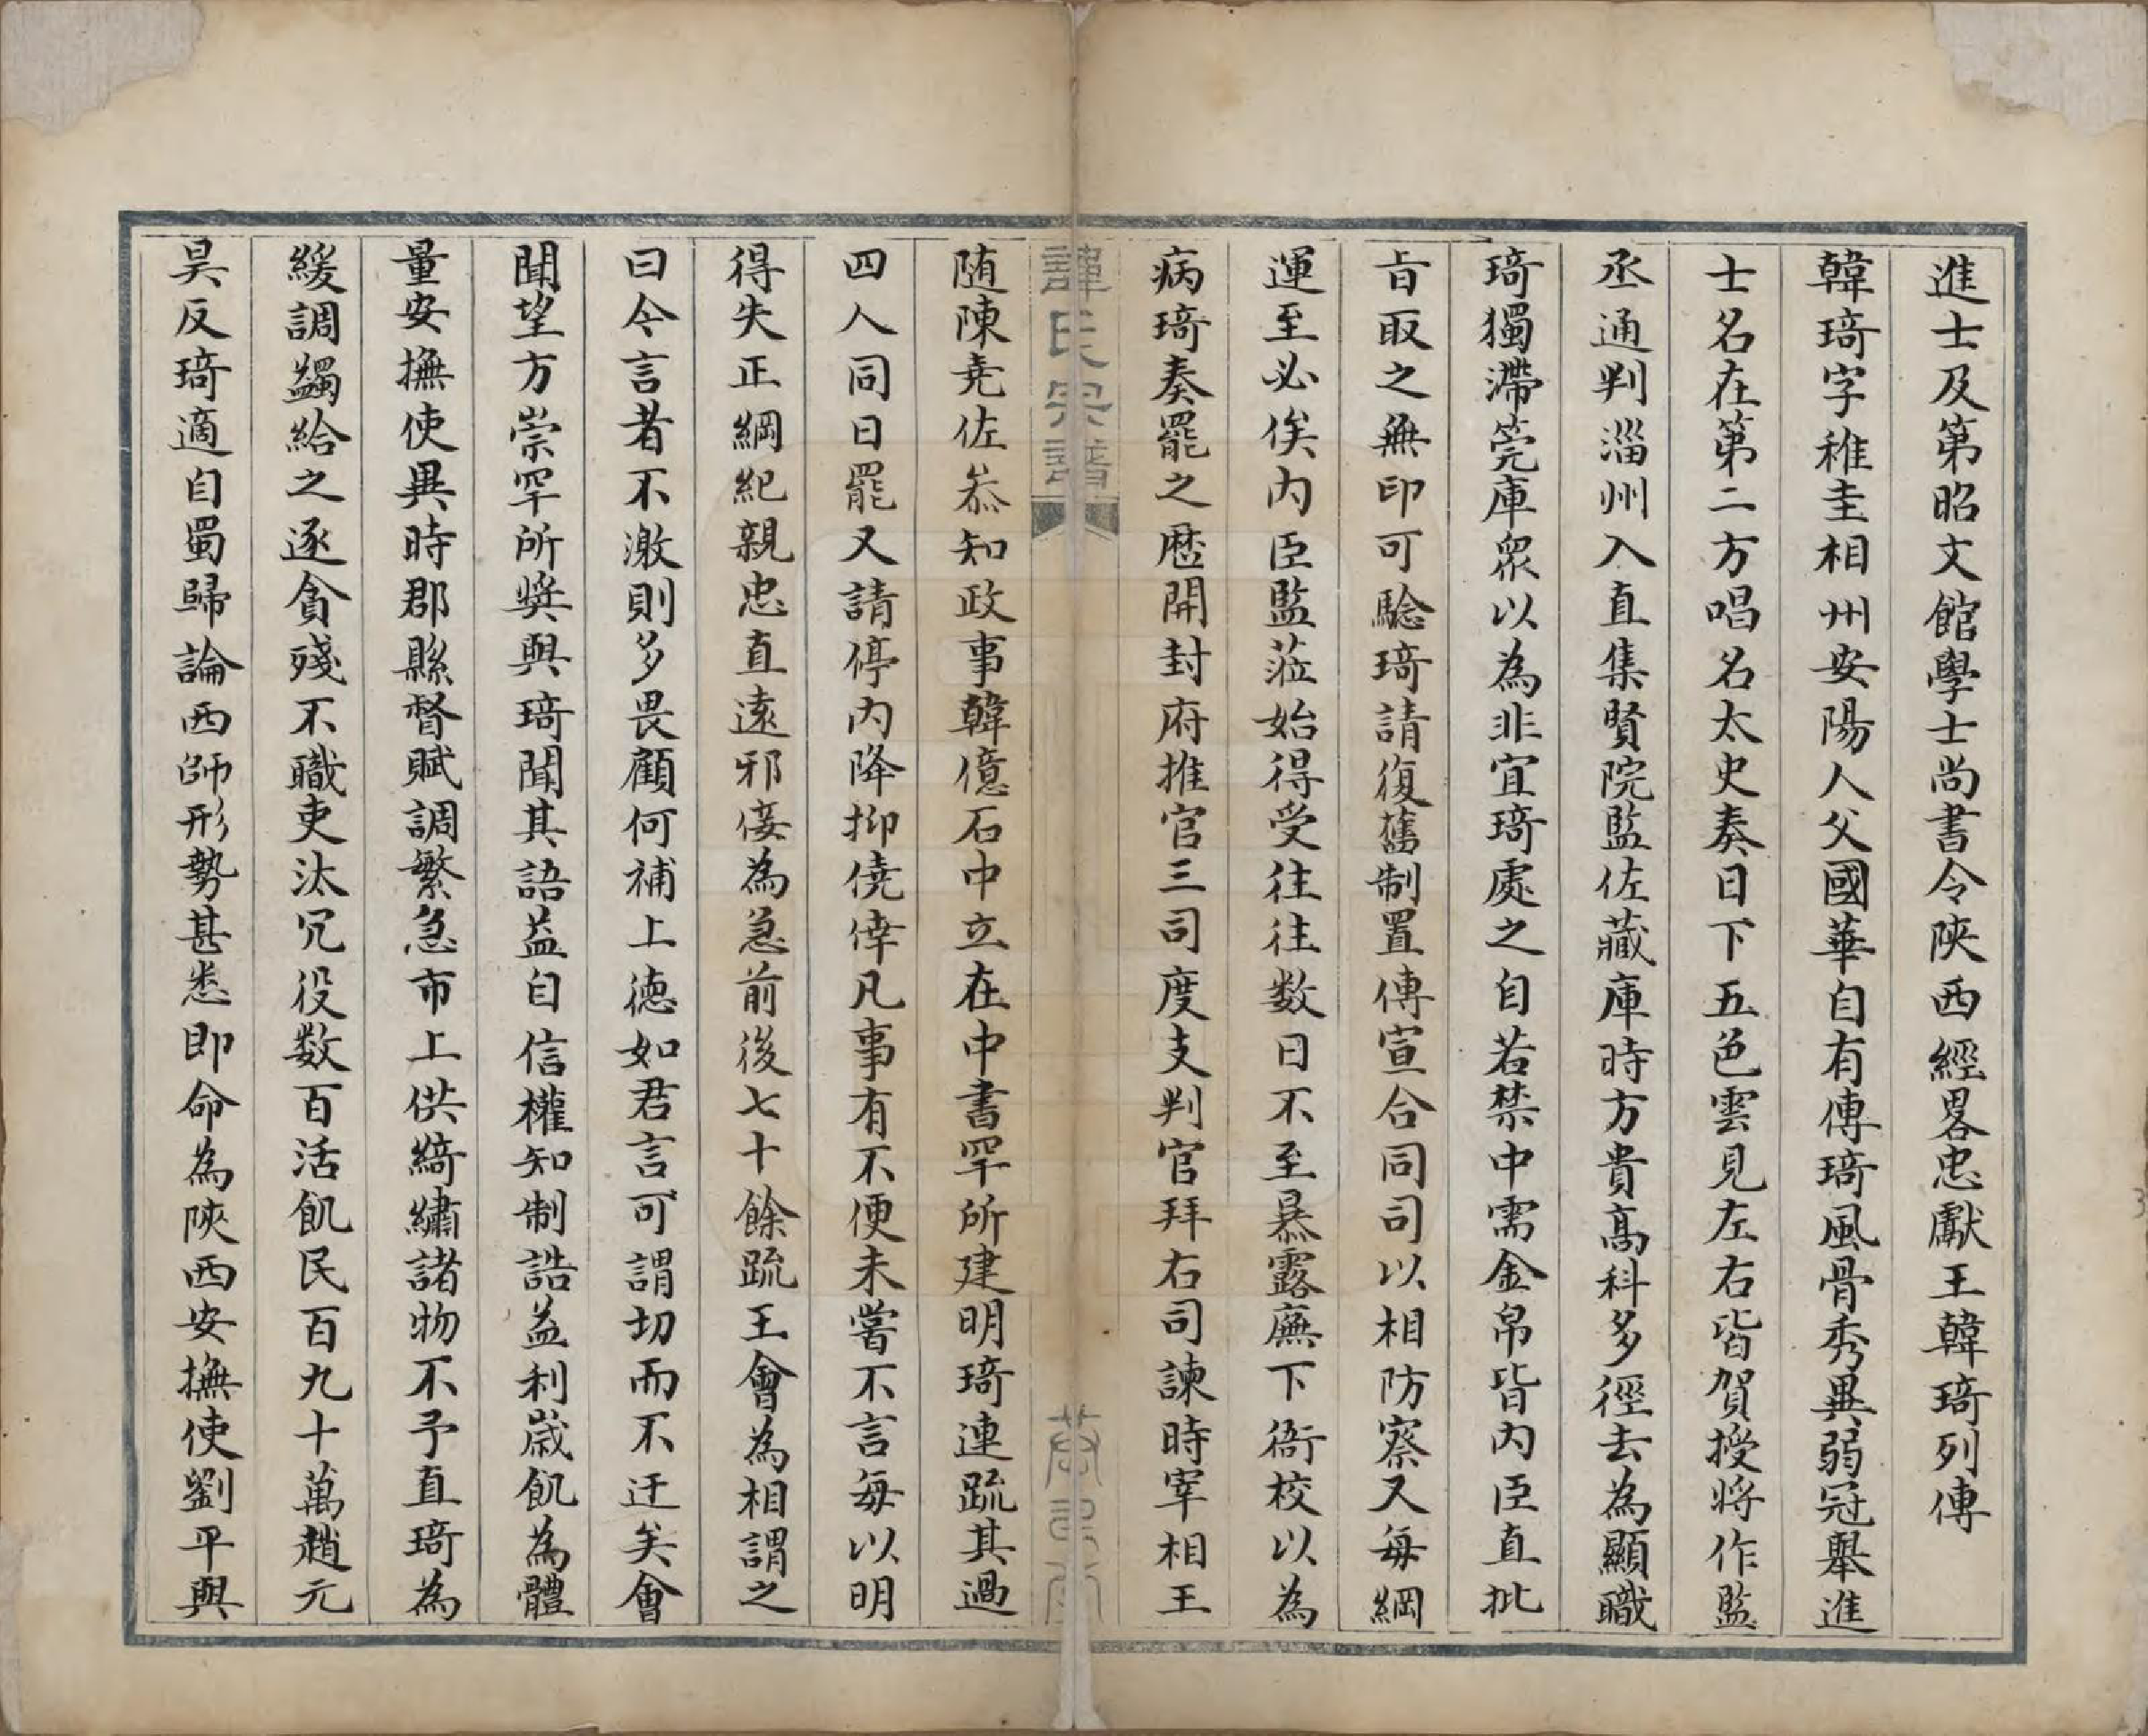 進士及第昭文館學士尚書令陝西經畧忠獻王韓琦列傳
韓琦字稚圭相州安陽人父國華自有傳琦風骨秀異弱冠舉進
士名在第二方唱名太史奏日下五色雲見左右皆賀授將作監
丞通判淄州入直集賢院監佐藏庫時方貴髙科多徑去為顯職
琦獨滯筦庫衆以為非宜琦處之自若禁中需金帛皆内臣直批
旨取之無印可騐琦請復舊制置傳宣合同司以相防察又每綱
運至必俟内臣監蒞始得受往往数日不至暴露廡下衙校以為
病琦奏罷之歷開封府推官三司度支判官拜右司諫時宰相王
韓氏宗譜
随陳堯佐叅知政事韓億石中立在中書罕所建明琦連䟽其過
四人同日罷又請停内降抑僥倖凡事有不便未嘗不言每以明
得失正綱紀親忠直遠邪佞為急前後七十餘䟽王會為相謂之
曰今言者不激則多畏顧何補上德如君言可謂切而不迂矣會
聞望方崇罕所奬與琦聞其語益自信權知制誥益利嵗飢為體
量安撫使異時郡縣督賦調繁急市上供綺繡諸物不予直琦為
緩調蠲給之逐貪殘不職吏汰冗役数百活飢民百九十萬趙元
昊反琦適自蜀歸論西師形勢甚悉即命為陝西安撫使劉平與